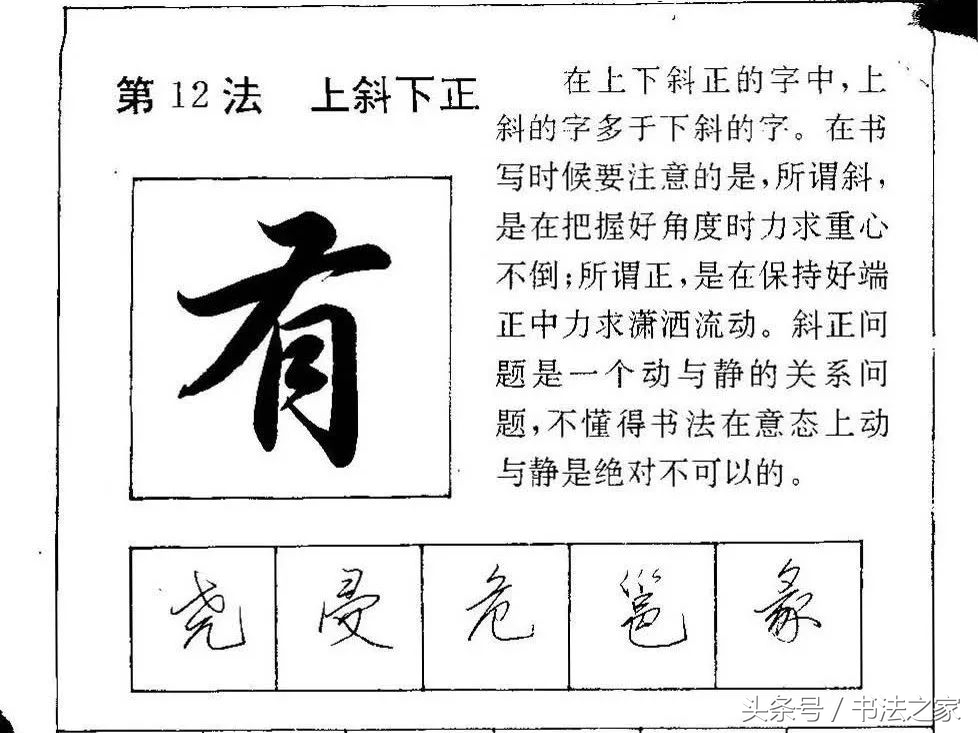 第12法 上斜下正
在上下斜正的字中，上
斜的字多于下斜的字。在书
写时候要注意的是，所谓斜，
是在把握好角度时力求重心
不倒；所谓正，是在保持好端
正中力求潇洒流动。斜正问
题是一个动与静的关系问
题，不懂得书法在意态上动
与静是绝对不可以的。
有
尧 㫗 危 邕 彖
头条号 / 书法之家